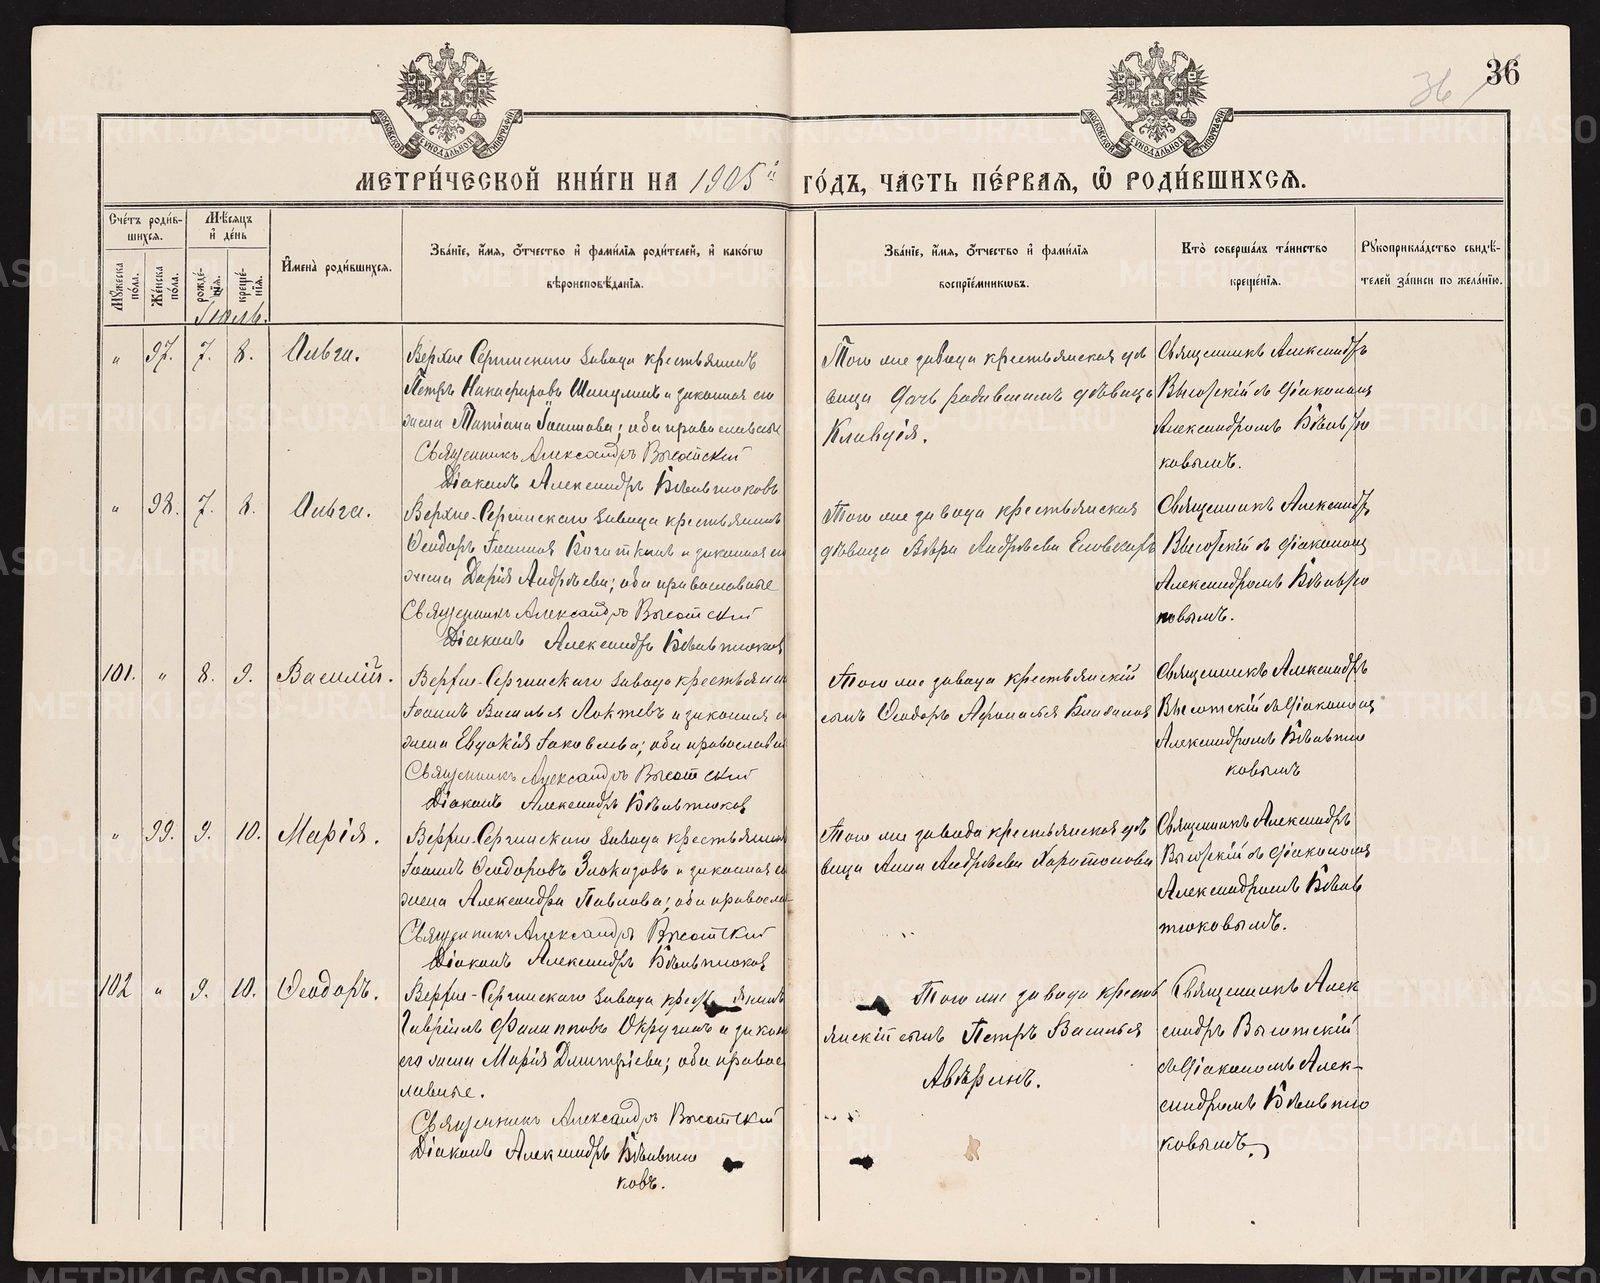 36
36
МЕТРИ́ЧЕСКОЙ КНИ́ГИ НА 1905й ГО́ДЪ, ЧАСТЬ ПЕ́РВАЯ, Ѡ РОДИ́ВШИХСЯ.
Сче́тъ роди́в-
шихся.
Мѣсяцъ
и де́нь
Мꙋжеска по́ла.
Же́нска по́ла.
рожде́-
нїя.
креще́-
нїя.
Имена̀ роди́вшихся.
Зва́нїе, и́мя, ѻ́тчество и фами́лїя роди́телей, и како́гѡ
вѣроисповѣ́данїя.
Зва́нїе, и́мя, ѻ́тчество и фами́лїя
воспрїе́мникѡвъ.
Кто̀ соверша́лъ та́инство
креще́нїя.
Рꙋкоприкла́дство свидѣ́-
телей за́писи по жела́нїю.
Іюль.
" 97. 7. 8. Ольга.
Верхне Сергинскаго завода крестьянинъ
Петръ Никифоровъ и законная его
жена Татіана Іоаннова; оба православные
Священникъ Александръ Высотскій
Діаконъ Александръ
Того же завода крестьянская дѣ
вица
Клавдія.
Священникъ Александръ
Высотскій съ діакономъ
Александромъ
ковымъ.
" 98. 7. 8. Ольга.
Верхне-Сергинскаго завода крестьянинъ
Ѳеодоръ Іоанновъ и законная его
жена Дарія Андрѣева; оба православные
Священникъ Александръ Высотскій
Діаконъ Александръ
Того же завода крестьянская
дѣвица Вѣра Андрѣева
Священникъ Александръ
Высотскій съ діакономъ
Александромъ
ковымъ.
101. " 8. 9. Василій.
Верхне-Сергинскаго завода крестьянинъ
Іоаннъ Васильевъ Локтевъ и законная его
жена Евдокія Іаковлева; оба православные
Священникъ Александръ Высотскій
Діаконъ Александръ
Того же завода крестьянскій
сынъ Ѳеодоръ
Священникъ Александръ
Высотскій съ діакономъ
Александромъ
ковымъ
" 99. 9. 10. Марія.
Верхне-Сергинскаго завода крестьянинъ
Іоаннъ Ѳеодоровъ Злоказовъ и законная его
жена Александра Павлова; оба правосла-
Священникъ Александръ Высотскій
Діаконъ Александръ
Того же завода крестьянская дѣ
вица Анна Андрѣева Харитонова
Священникъ Александръ
Высотскій съ діакономъ
Александромъ
тюковымъ.
102 " 9. 10. Ѳеодоръ.
Верхне-Сергинскаго завода крестьянинъ
Гавріилъ Филипповъ и закон
его жена Марія Димитріева; оба правос
лавные.
Священникъ Александръ Высотскій
Діаконъ Александръ
ковъ.
Того же завода кресть
янскій сынъ Петръ Васильевъ
Аверинъ.
Священникъ Алек
сандръ Высотскій
съ діакономъ Алек-
сандромъ
ковымъ.
METRIKI.GASO-URAL.RU